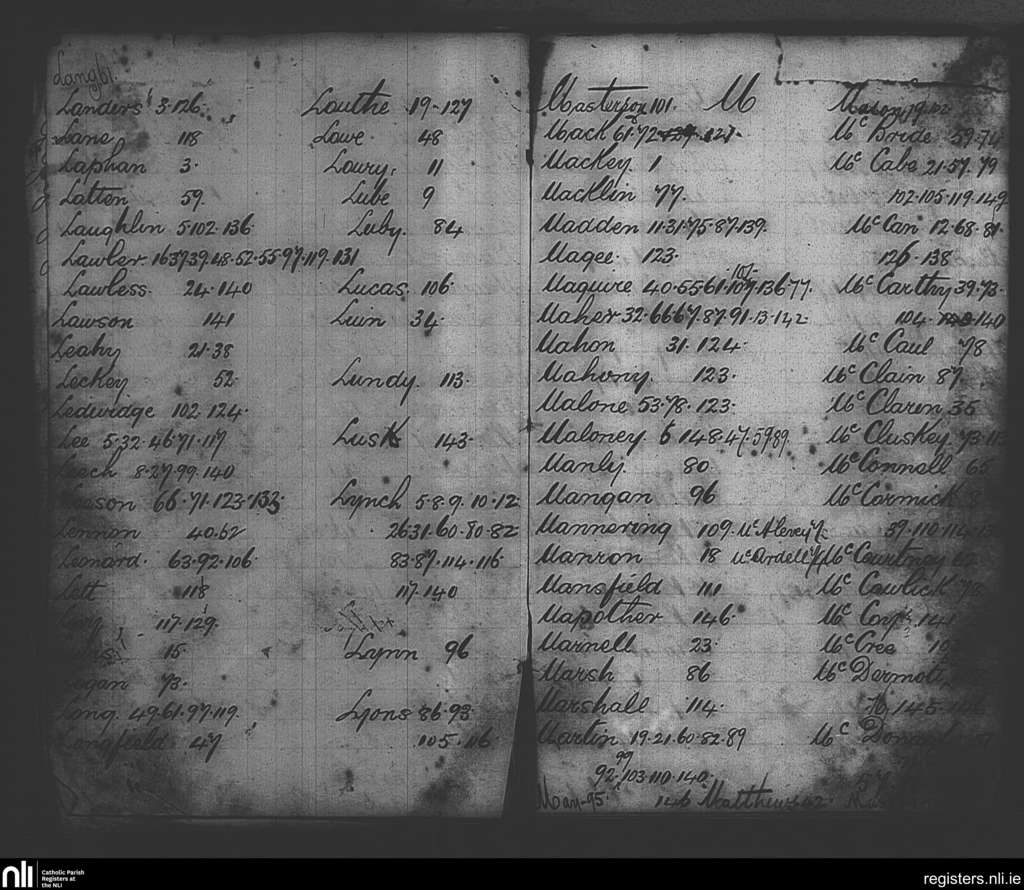 Lang 61.
Landers 3·126·
Lane 118
Laphan 3·
Latten 59·
Laughlin 5·102·136·
Lawler 16 37 39·48·52·55·97·119·131
Lawless· 24·140
Lawson 141
Leahy 21·38
Leckey 52·
Ledwidge 102·124·
Lee 5·32·46·71·117
Leech 8·27·99·140
Leeson 66·71·123·133·
Lennon 40·62
Leonard· 63·92·106·
Lett 118
117·129·
15·
73·
Long 49·61·97·119·
Longfield 47
Louthe 19·127
Lowe· 48
Lowry· 11
Lube 9
Luby· 84
Lucas 106·
Luin 34·
Lundy· 113·
Lusk 143·
Lynch 5·8·9·10·12
26·31·60·80·82
83·87·114·116
117·140
Lynn 96
Lyons 86·93·
105·116
M
Masterson 101·
Mack 61·72·127· 121·
Mackey· 1
Macklin 77·
Madden 11·31·75·87·139·
Magee· 123·
Maguire 40·55 61·107·136 77·
Maher 32·66 67·87·91·13·142
Mahon 31·124·
Mahony· 123·
Malone 53·78·123·
Maloney· 6 148·47·59 89
Manly· 80
Mangan 96
Mannering 109·
Manron 18
Mansfield 111
Mapother 146·
Marnell 23·
Marsh 86
Marshall 114·
Martin 19·21·60·82·89
99
92·103·110·140·
May-95· 146 Matthews 42·
Mason 19
Mc Bride 59·74
Mc Cabe 21·57·79
102·105·119·149
Mc Can 12·68·81·
126·138
Mc Carthy 39·73·
104· 140
Mc Caul 78
Mc Clain 87
Mc Claren 35
Mc Cluskey 73
Mc Connell 65
Mc Cormick
Mc Alevey 7· 59·110·114
Mc Ardell Mc Courtney 62
Mc Cowlick 78
Mc Coy 141
Mc Cree
Mc Dermott
145·
nli
Catholic Parish
Registers at
the NLI
registers.nli.ie